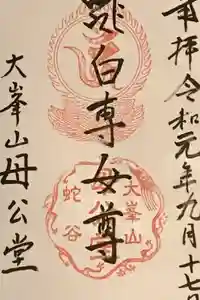 奉拝令和元年九月十七日
白専女尊
大峯山母公堂
大峯山
蛇谷